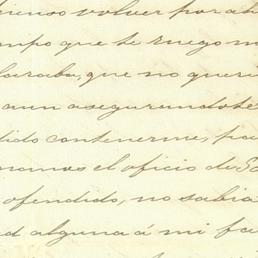 pienso volver por ah
mpo que te ruego m
laraba, que no queri
aun asegurandote
dido contenerme, pa
namos el oficio de Sa
ofendido, no sabia
d alguna á mi fa